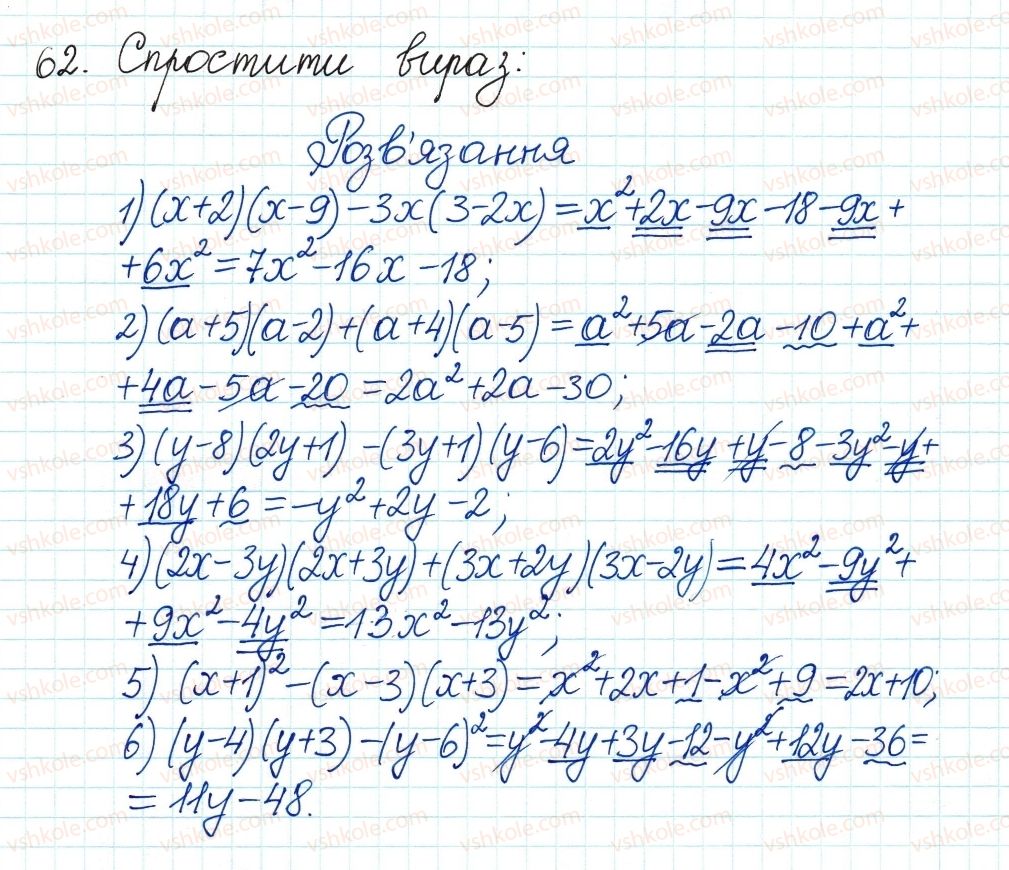 62. Спростити вираз:
Розв'язання
1) (x+2)(x-9)-3x(3-2x)=x²+2x-9x-18-9x+
+6x²=7x²-16x-18;
2) (a+5)(a-2)+(a+4)(a-5)=a²+5a-2a-10+a²+
+4a-5a-20=2a²+2a-30;
3) (y-8)(2y+1)-(3y+1)(y-6)=2y²-16y+y-8-3y²-y+
+18y+6=-y²+2y-2;
4) (2x-3y)(2x+3y)+(3x+2y)(3x-2y)=4x²-9y²+
+9x²-4y²=13x²-13y²;
5) (x+1)²-(x-3)(x+3)=x²+2x+1-x²+9=2x+10;
6) (y-4)(y+3)-(y-6)²=y²-4y+3y-12-y²+12y-36=
=11y-48.